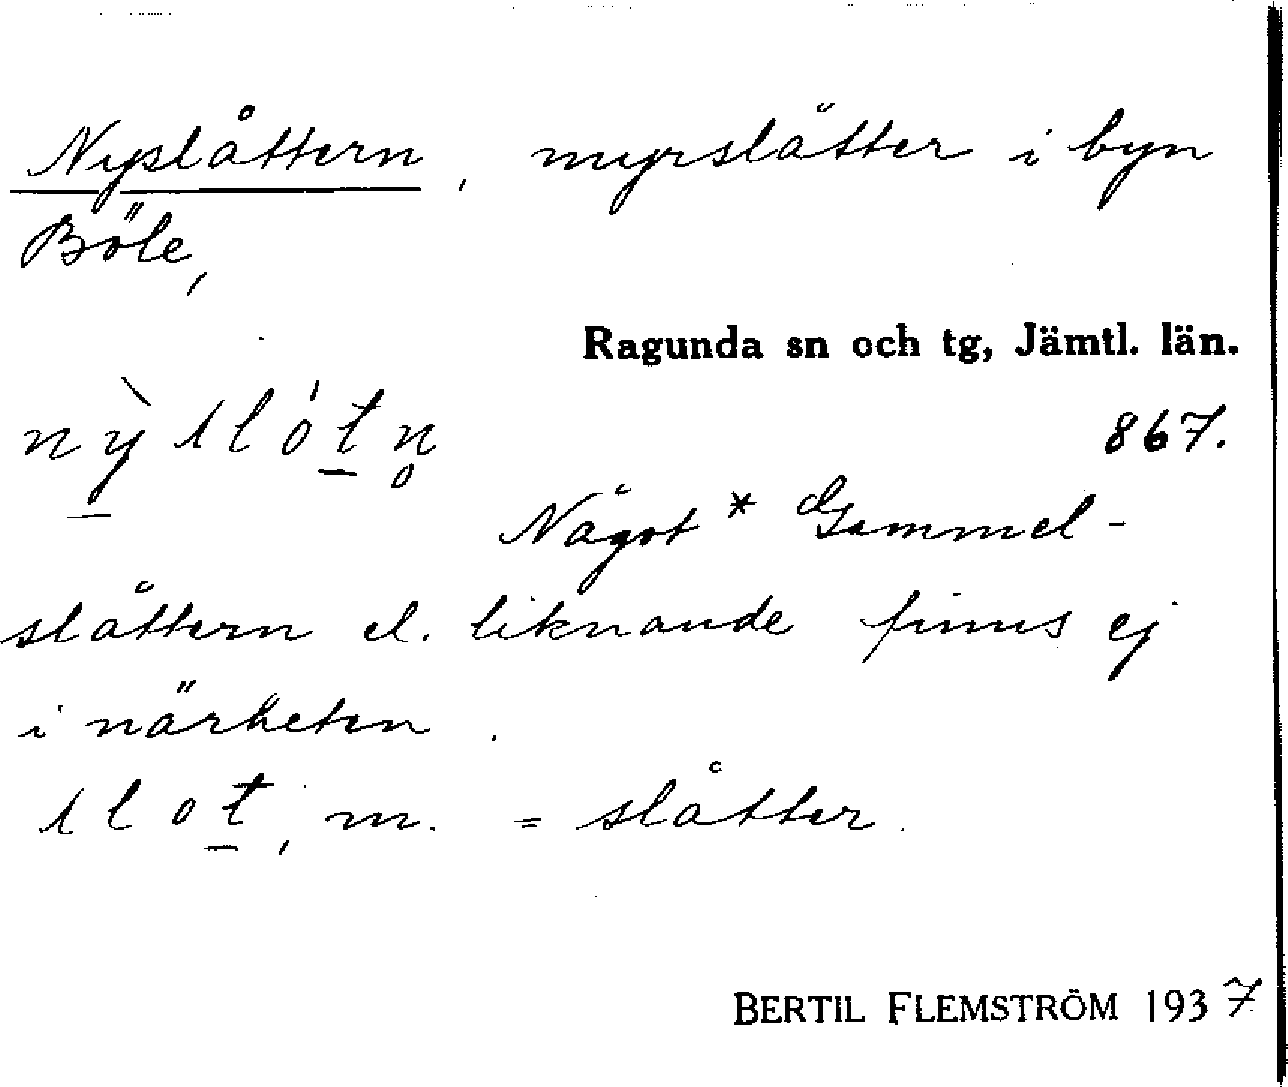 Nyslåttern, myrslåtter i byn
Böle,
Ragunda sn och tg, Jämtl. län.
nỳslótn̥
867.
Något * Gammel-
slåttern el. liknande finns ej
i närheten.
slot, m. = slåtter.
BERTIL FLEMSTRÖM 1937